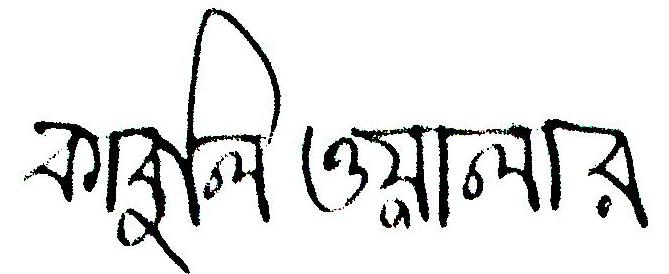 কাবুলিওয়ালার